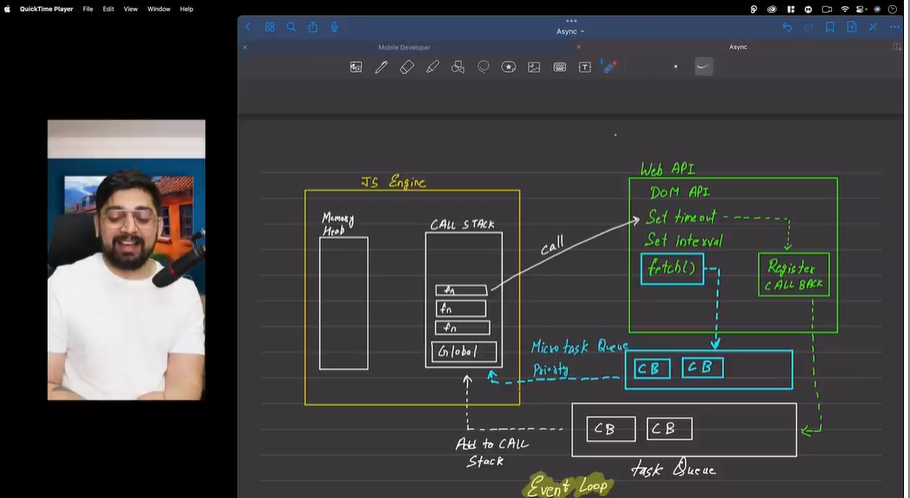 QuickTime Player File Edit View Window Help
Async
Mobile Developer
Async
JS Engine
Memory
Heab
CALL STACK
fn
fn
fn
Global
call
Web API
DOM API
Set timeout
Set interval
fetch()
Register
CALL BACK
Microtask Queue
Priority
CB CB
CB CB
Add to CALL
Stack
task Queue
Event Loop